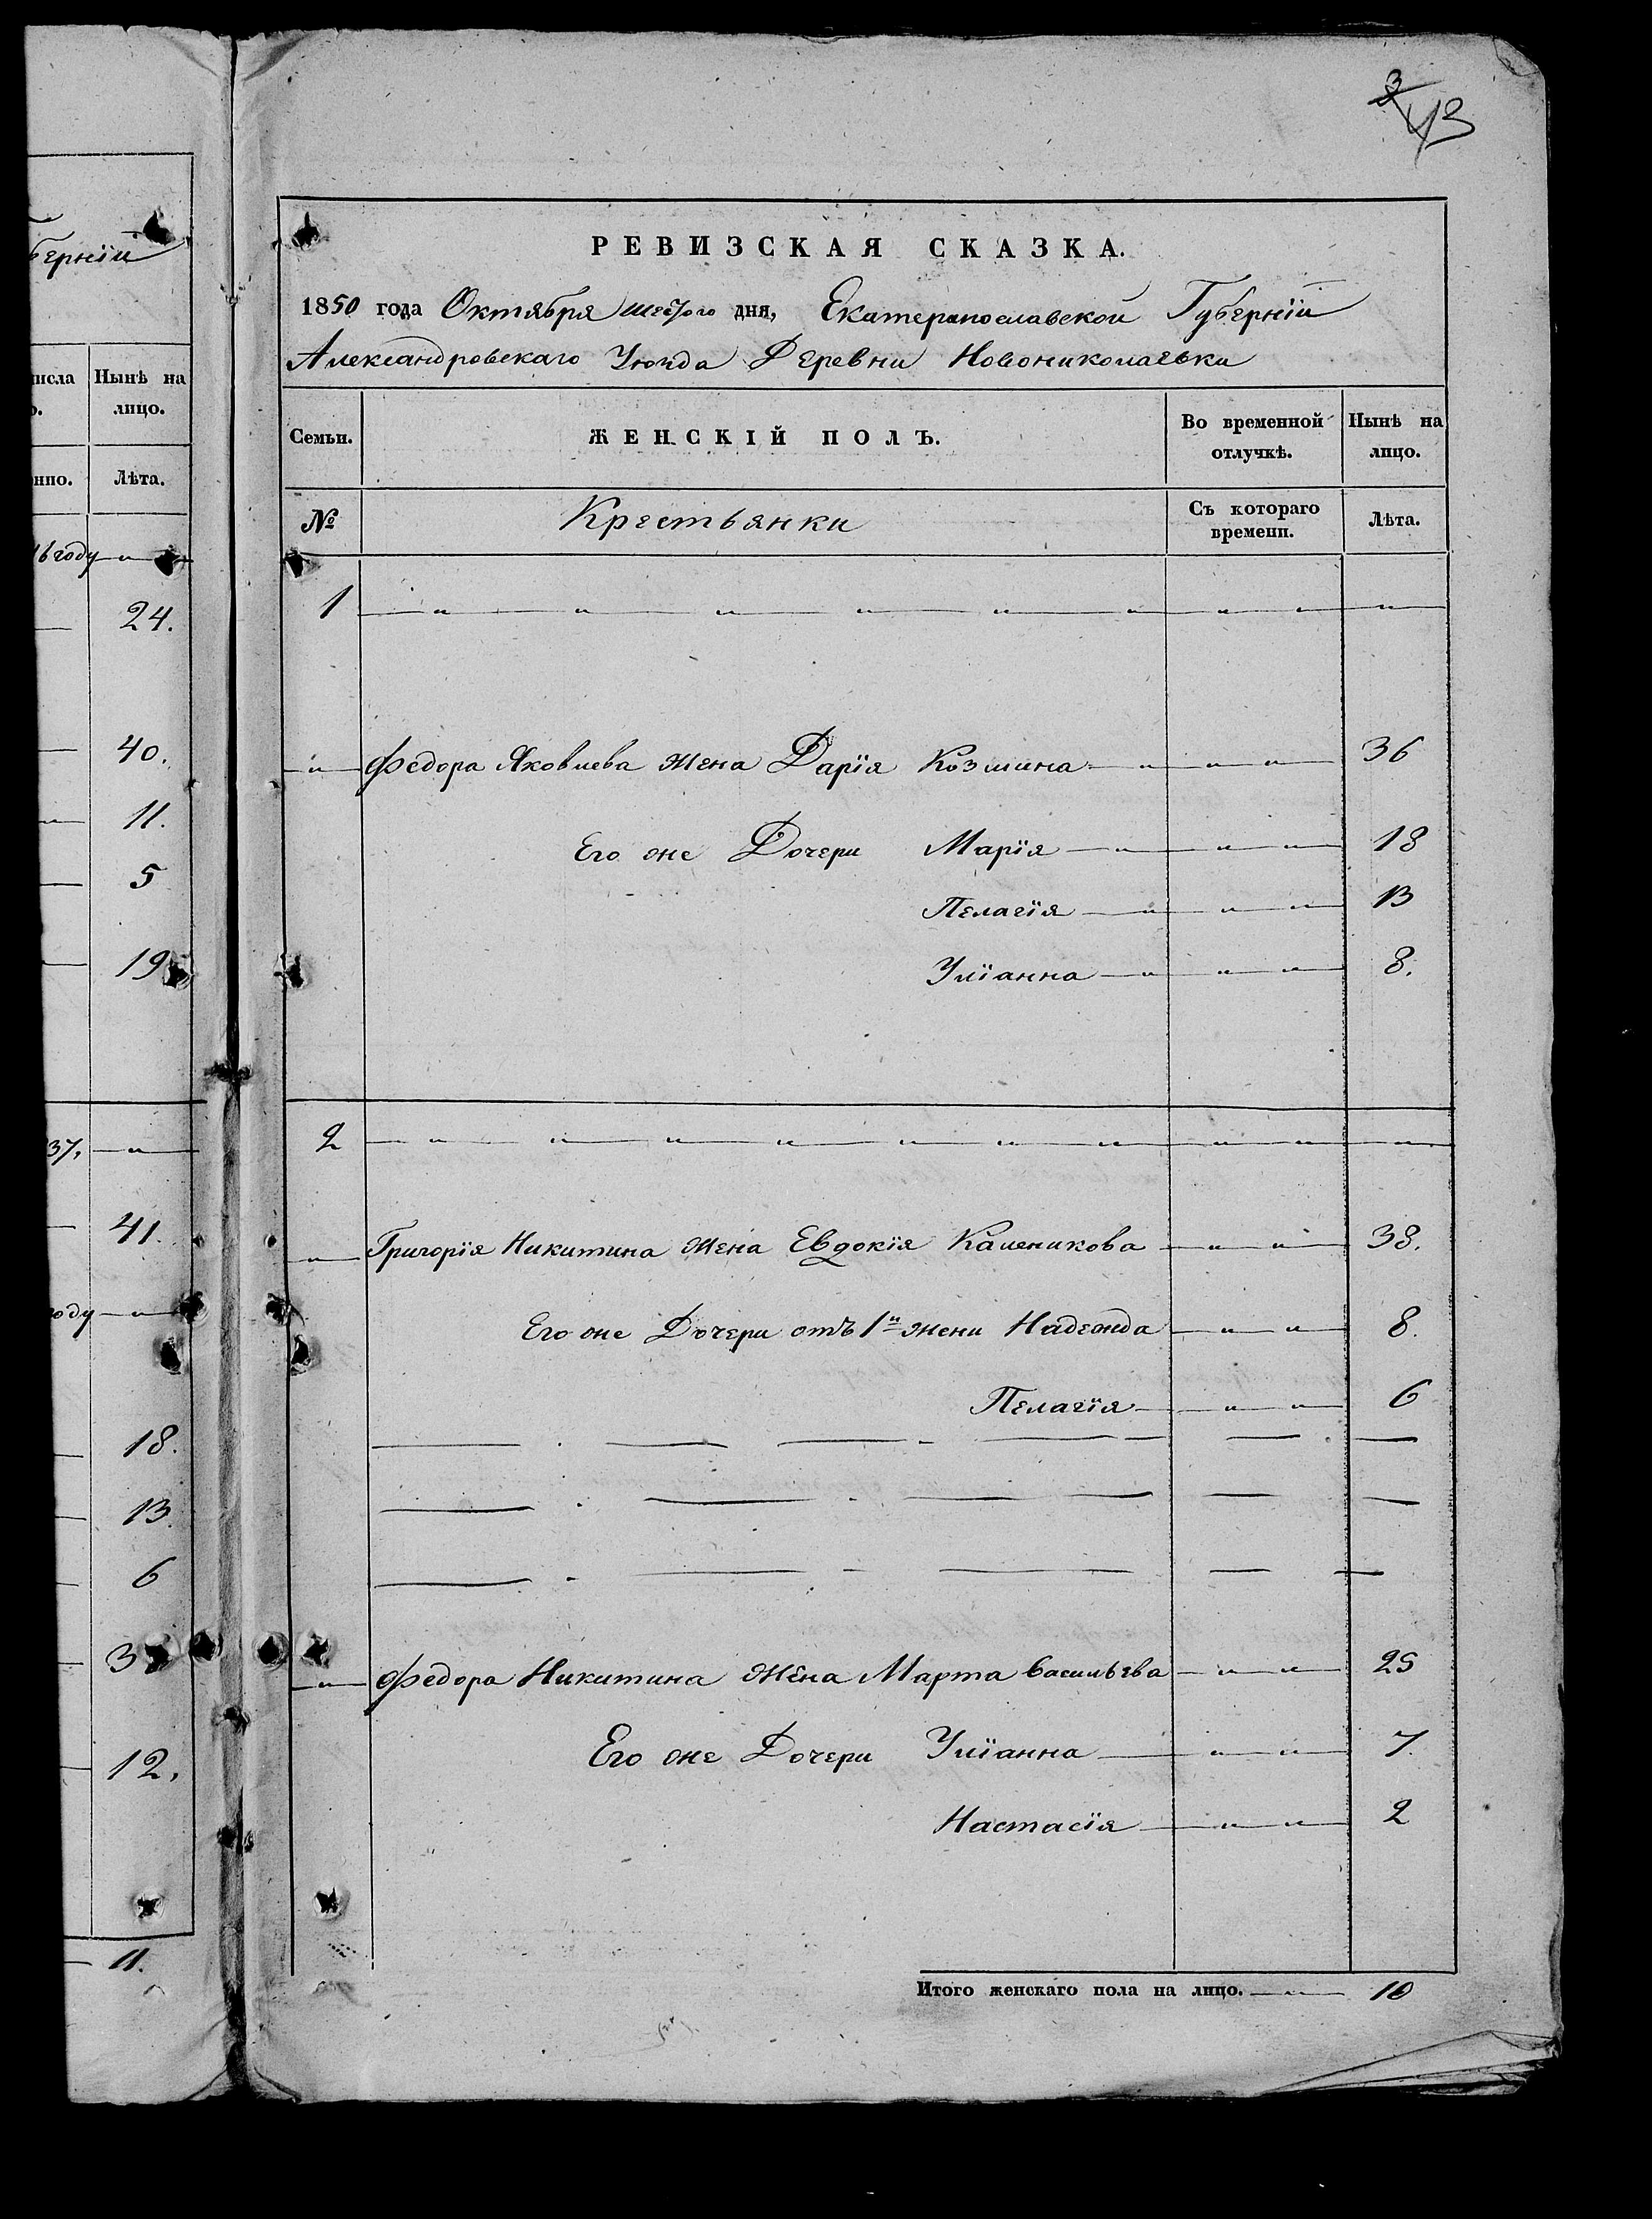 3
43
бернiи
исла Нынѣ на
о. лицо.
нно. Лѣта.
16 году — „ —
24.
40.
11.
5
19
37, — „ —
41.
оду — „ —
18.
13.
6
3
12,
11.
РЕВИЗСКАЯ СКАЗКА.
1850 года Октября шестого дня, Екатеринославской Губернiи
Александровскаго Уѣзда Деревни Новониколаевки
Семьи. ЖЕНСКIЙ ПОЛЪ. Во временной отлучкѣ. Нынѣ на лицо.
№ Крестьянки Съ котораго времени. Лѣта.
1 — „ — „ — „ — „ — „ — „ — „ — „ — „ —
— „ — Федора Яковлева жена Дарiя Козмина — „ — „ — „ — 36
Его же Дочери Марiя — „ — „ — „ — 18
Пелагiя — „ — „ — „ — 13
Улiанна — „ — „ — „ — 8.
2 — „ — „ — „ — „ — „ — „ — „ — „ — „ — „ —
— „ — Григорiя Никитина жена Евдокiя Каленикова — „ — „ — 38.
Его же Дочери отъ 1й жени Надежда — „ — „ — 8.
Пелагiя — „ — „ — 6
— „ — Федора Никитина жена Марта Васильева — „ — „ — 25
Его же Дочери Улiанна — „ — „ — 7.
Настасiя — „ — „ — 2
Итого женскаго пола на лицо. — „ — 10